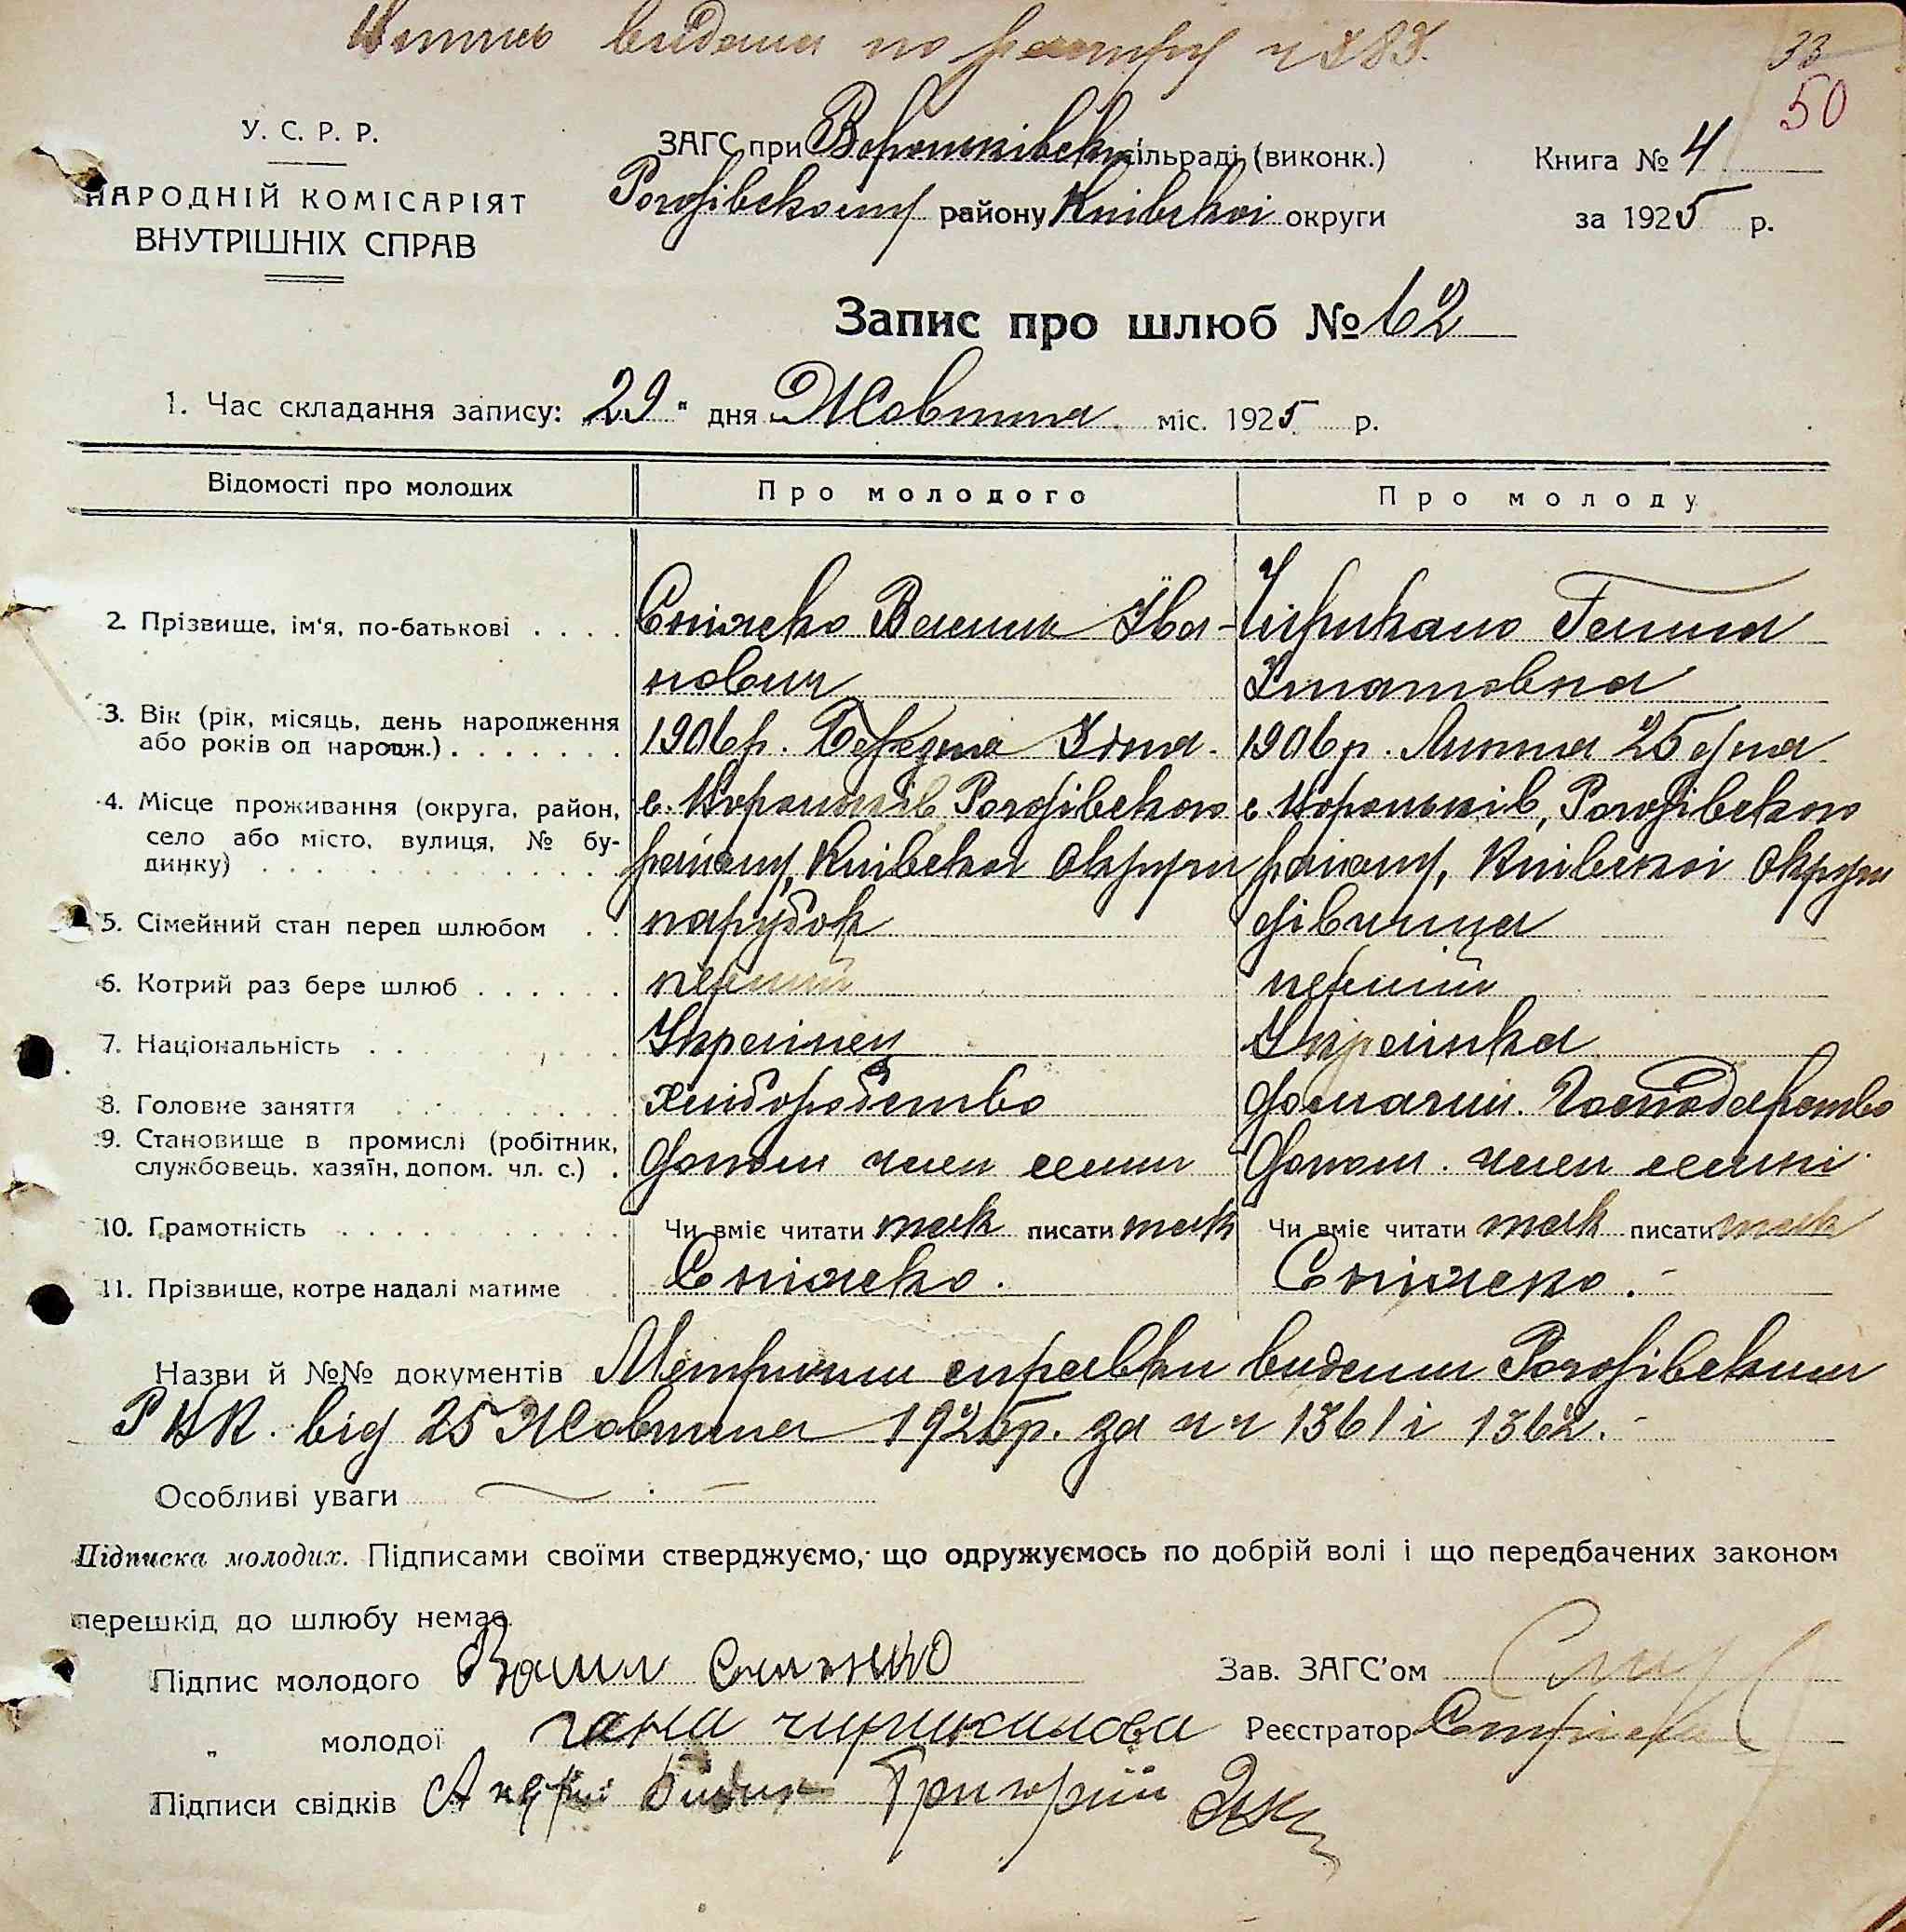 видана по реєстру ч 583.
33
50
У. С. Р. Р.
НАРОДНІЙ КОМІСАРІЯТ
ВНУТРІШНІХ СПРАВ
ЗАГС при Вороньківськ. сільраді (виконк.)
Рогозівському району Київської округи
Книга № 4
за 1925 р.
Запис про шлюб № 62
1. Час складання запису: „29" дня Жовтня міс. 1925 р.
Відомості про молодих
Про молодого
Про молоду
2. Прізвище, ім'я, по-батькові
Сніжко Василь Іва-
нович
Чирикало Ганна
Ігнатовна
3. Вік (рік, місяць, день народження
або років од народж.)
1906 р. Березня дня.
1906 р. Липня 25 дня
4. Місце проживання (округа, район,
село або місто, вулиця, № бу-
динку)
с. Вороньків Рогозівського
району, Київської округи
с. Вороньків, Рогозівського
району, Київської округи
5. Сімейний стан перед шлюбом
парубок
дівчина
6. Котрий раз бере шлюб
перший
перший
7. Національність
Українец
Українка
8. Головне заняття
хліборобство
домашн. Господарство
9. Становище в промислі (робітник,
службовець, хазяїн, допом. чл. с.)
допом член семии
допом. член семьі
10. Грамотність
Чи вміє читати так писати так
Чи вміє читати так писати так
11. Прізвище, котре надалі матиме
Сніжко.
Сніжко.
Назви й №№ документів Метричні справки видани Рогозівським
РВК. від 25 Жовтня 1925 р. за чч 1361 і 1362.
Особливі уваги
Підписка молодих. Підписами своїми стверджуємо, що одружуємось по добрій волі і що передбачених законом
перешкід до шлюбу немає.
Підпис молодого
Зав. ЗАГС'ом
„ молодої гана чирикалова
Реєстратор
Підписи свідків Григорій